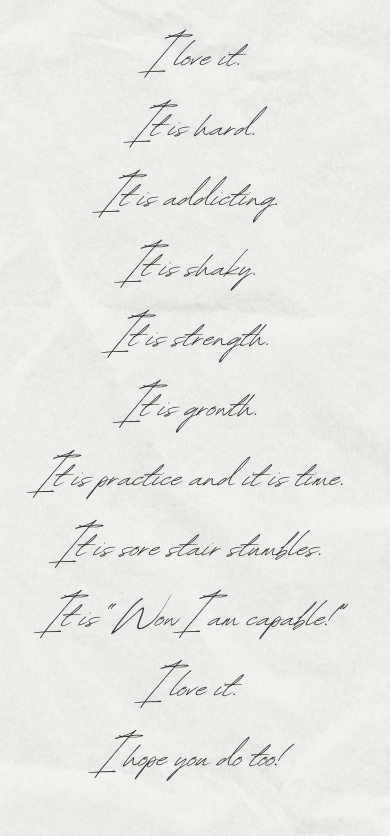 I love it.
It is hard.
It is addicting.
It is shaky.
It is strength.
It is growth.
It is practice and it is time.
It is sore stair stumbles.
It is "Wow I am capable!"
I love it.
I hope you do too!